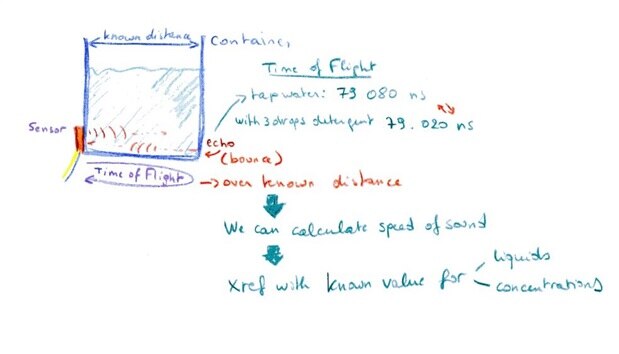 known distance
Container
Time of Flight
tapwater: 79 080 ns
with 3 drops detergent 79.020 ns
Sensor
echo
(bounce)
Time of Flight
→ over known distance
We can calculate speed of sound
Xref with known value for
liquids
concentrations